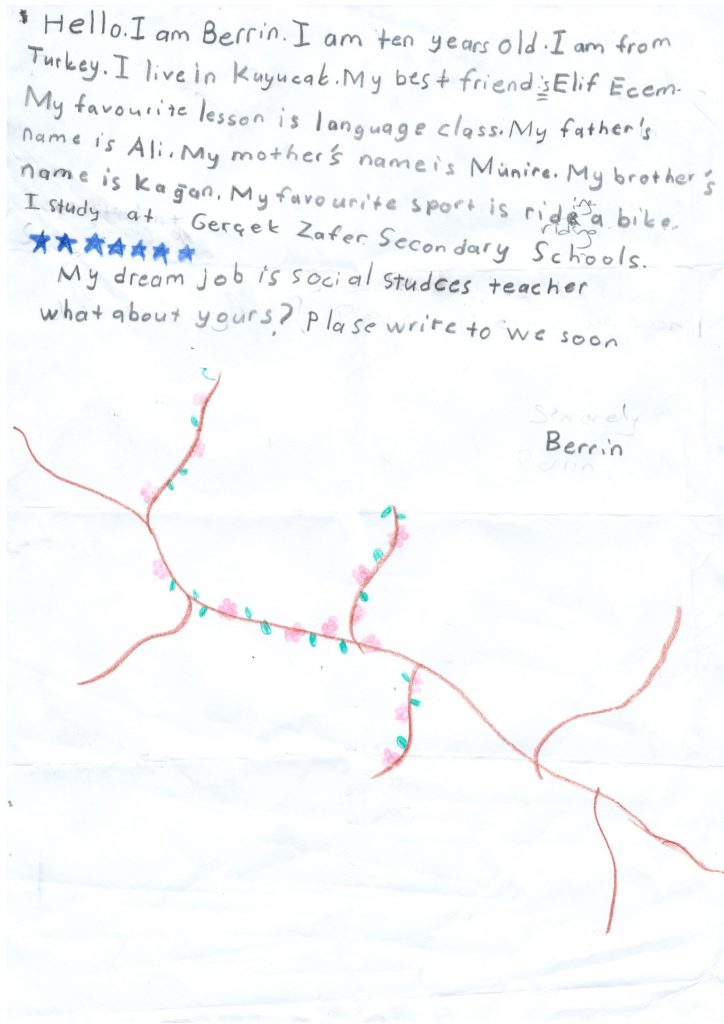 Hello. I am Berrin. I am ten years old. I am from
Turkey. I live in Kuyucak. My best friend is Elif Ecem.
My favourite lesson is language class. My father's
name is Ali. My mother's name is Münire. My brother's
name is Kağan. My favourite sport is riding a bike.
riding
I study at Gerçek Zafer Secondary Schools.
My dream job is social studces teacher
what about yours? Plase write to we soon
Berrin
Berrin